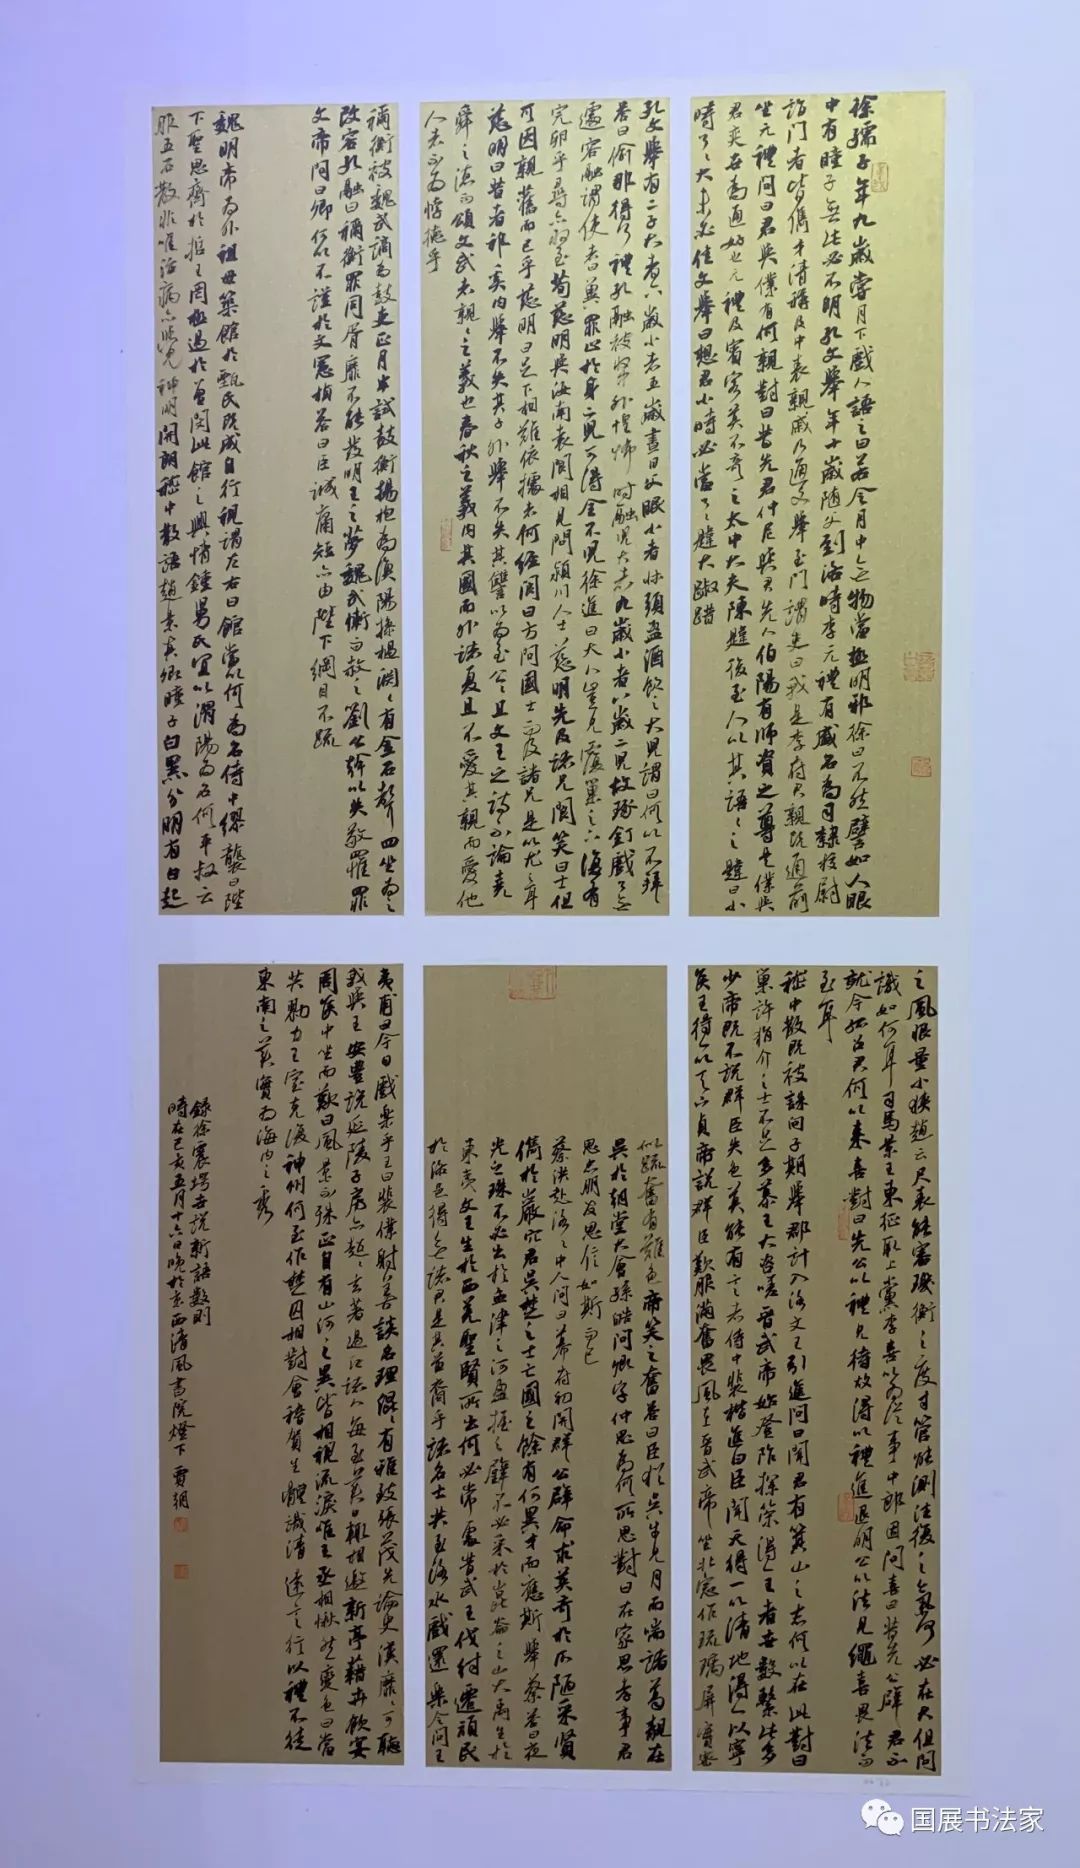 徐孺子年九歲嘗月下戲人語之曰若令月中無物當極明邪徐曰不然譬如人眼
中有瞳子無此必不明孔文舉年十歲隨父到洛時李元禮有盛名為司隸校尉
詣門者皆儁才清稱及中表親戚乃通文舉至門謂吏曰我是李府君親既通前
坐元禮問曰君與僕有何親對曰昔先君仲尼與君先人伯陽有師資之尊是僕與
君奕世為通好也元禮及賓客莫不奇之太中大夫陳韙後至人以其語語之韙曰小
時了了大未必佳文舉曰想君小時必當了了韙大踧踖
孔文舉有二子大者六歲小者五歲晝日父眠小者牀頭盜酒飲之大兒謂曰何以不拜
答曰偷那得行禮孔融被收中外惶怖時融兒大者九歲小者八歲二兒故琢釘戲了無
遽容融謂使者曰冀罪止於身二兒可得全不兒徐進曰大人豈見覆巢之下復有
完卵乎尋亦收至荀慈明與汝南袁閬相見問潁川人士慈明先及諸兄閬笑曰士但
可因親舊而已乎慈明曰足下相難依據者何經閬曰方問國士而及諸兄是以尤之耳
慈明曰昔者祁奚內舉不失其子外舉不失其讎以為至公公旦文王之詩不論堯
舜之德而頌文武者親親之義也春秋之義內其國而外諸夏且不愛其親而愛他
人者不為悖德乎
禰衡被魏武謫為鼓吏正月半試鼓衡揚枹為漁陽摻檛淵淵有金石聲四坐為之
改容孔融曰禰衡罪同胥靡不能發明王之夢魏武慚而赦之劉公幹以失敬罹罪
文帝問曰卿何以不謹於文憲楨答曰臣誠庸短亦由陛下綱目不疏
魏明帝為外祖母築館於甄氏既成自行視謂左右曰館當以何為名侍中繆襲曰陛
下聖思齊於哲王罔極過於曾閔此館之興情鍾舅氏宜以渭陽為名何平叔云
服五石散非唯治病亦覺神明開朗嵇中散語趙景真卿瞳子白黑分明有白起
之風恨量小狹趙云尺表能審璣衡之度寸管能測往復之氣何必在大但問
識如何耳司馬景王東征取上黨李喜以為從事中郎因問喜曰昔先公辟君不
就今孤召君何以來喜對曰先公以禮見待故得以禮進退明公以法見繩喜畏法而
至耳
嵇中散既被誅向子期舉郡計入洛文王引進問曰聞君有箕山之志何以在此對曰
巢許狷介之士不足多慕王大咨嗟晉武帝始登阼探策得一王者世數繫此多
少帝既不說群臣失色莫能有言者侍中裴楷進曰臣聞天得一以清地得一以寧
侯王得一以天下貞帝說群臣歎服滿奮畏風在晉武帝坐北窗作琉璃屏實密
似疏奮有難色帝笑之奮答曰臣猶吳牛見月而喘諸葛靚在
吳於朝堂大會孫皓問卿字仲思為何所思對曰在家思孝事君
思忠朋友思信如斯而已
蔡洪赴洛洛中人問曰幕府初開群公辟命求英奇於仄陋采賢
儁於巖穴君吳楚之士亡國之餘有何異才而應斯舉蔡答曰夜
光之珠不必出於孟津之河盈握之璧不必采於崑崙之山大禹生於
東夷文王生於西羌聖賢所出何必常處昔武王伐紂遷頑民
於洛邑得無諸君是其苗裔乎諸名士共至洛水戲還樂令問王
夷甫曰今日戲樂乎王曰裴僕射善談名理混混有雅致張茂先論史漢靡靡可聽
我與王安豐說延陵子房亦超超玄著過江諸人每至美日輒相邀新亭藉卉飲宴
周侯中坐而歎曰風景不殊正自有山河之異皆相視流淚唯王丞相愀然變色曰當
共勠力王室克復神州何至作楚囚相對會稽賀生體識清遠言行以禮不徒
東南之美實為海內之秀
錄徐震堮世說新語數則
時在己亥五月十六日晚於京西清風書院燈下
国展书法家